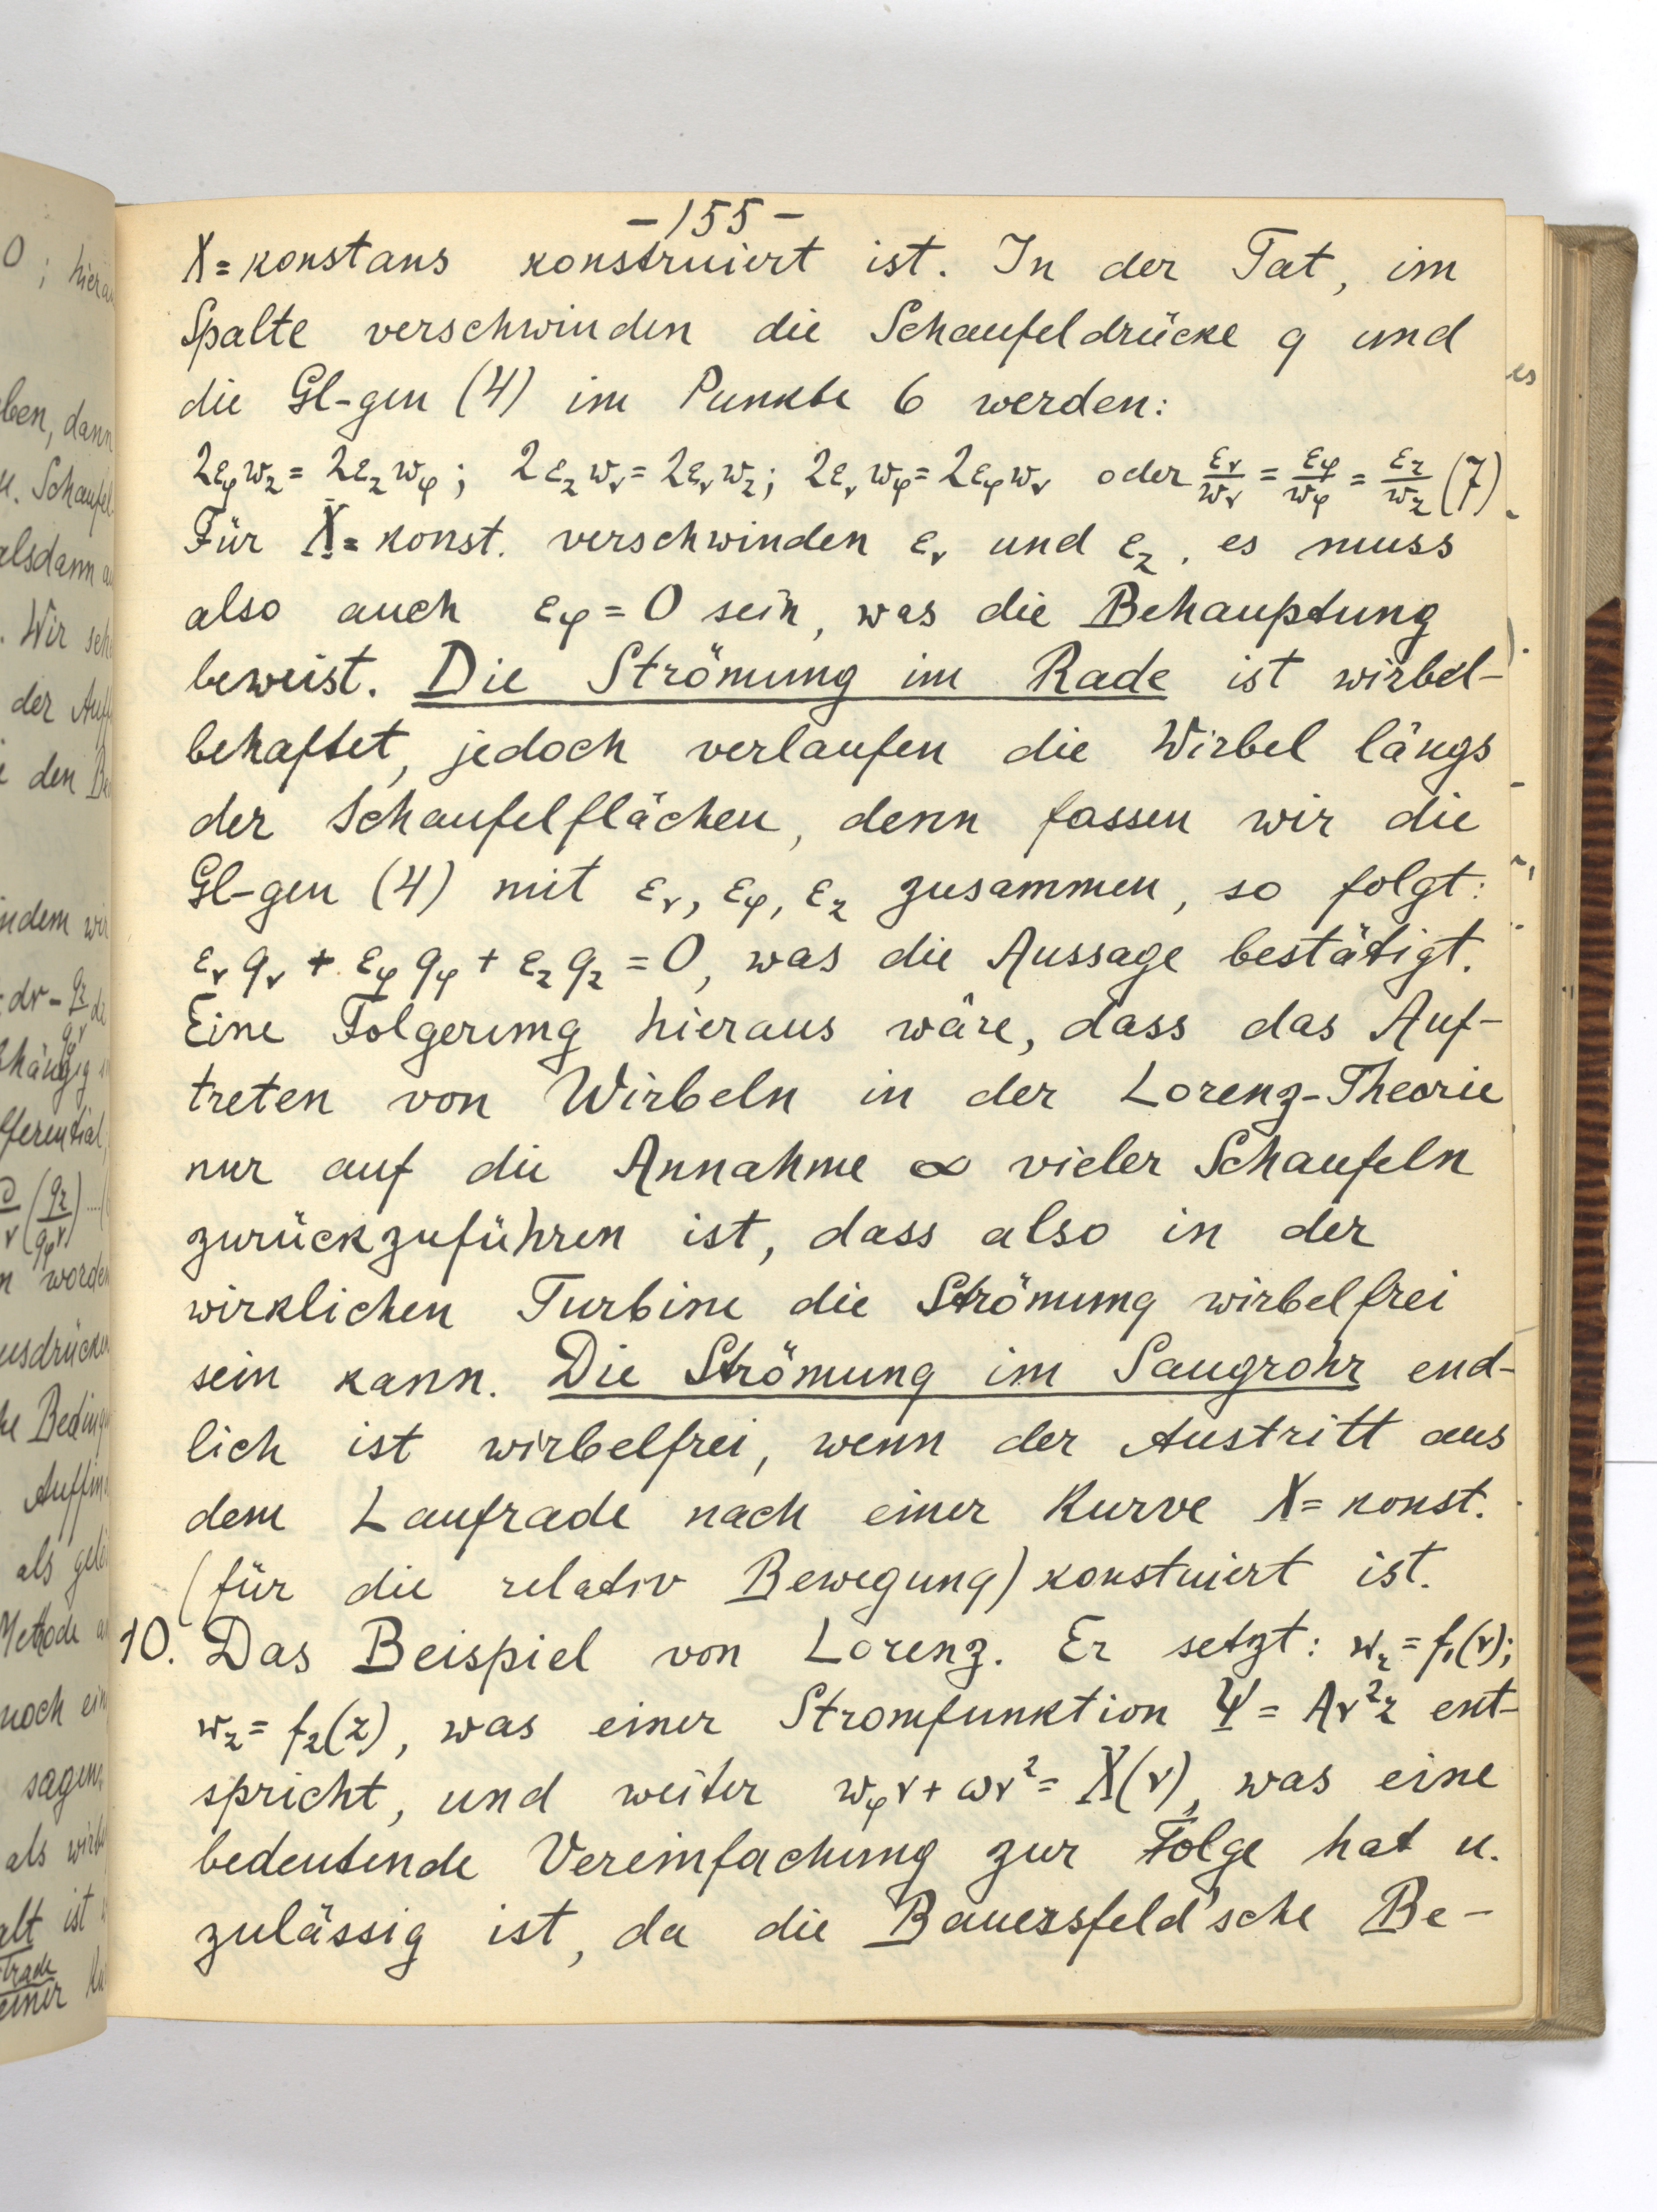 -155-
X = konstans konstruiert ist. In der Tat, im
Spalte verschwinden die Schaufeldrücke q und
die Gl-gen (4) im Punkte 6 werden:
2εφwz = 2εzwφ; 2εzwr = 2εrwz; 2εrwφ = 2εφwr oder εr/wr = εφ/wφ = εz/wz (7)
Für X = konst. verschwinden εr und εz, es muss
also auch εφ = 0 sein, was die Behauptung
beweist. Die Strömung im Rade ist wirbel-
behaftet, jedoch verlaufen die Wirbel längs
der Schaufelflächen, denn fassen wir die
Gl-gen (4) mit εr, εφ, εz zusammen, so folgt:
εrqr + εφqφ + εzqz = 0, was die Aussage bestätigt.
Eine Folgerung hieraus wäre, dass das Auf-
treten von Wirbeln in der Lorenz-Theorie
nur auf die Annahme ∞ vieler Schaufeln
zurückzuführen ist, dass also in der
wirklichen Turbine die Strömung wirbelfrei
sein kann. Die Strömung im Saugrohr end-
lich ist wirbelfrei, wenn der Austritt aus
dem Laufrade nach einer Kurve X = konst.
(für die relativ Bewegung) konstuiert ist.
10. Das Beispiel von Lorenz. Er setzt: wr = f1(r);
wz = f2(z), was einer Stromfunktion Ψ = Ar²z ent-
spricht, und weiter wφr + ωr² = X(r), was eine
bedeutende Vereinfachung zur Folge hat u.
zulässig ist, da die Bauersfeld'sche Be-